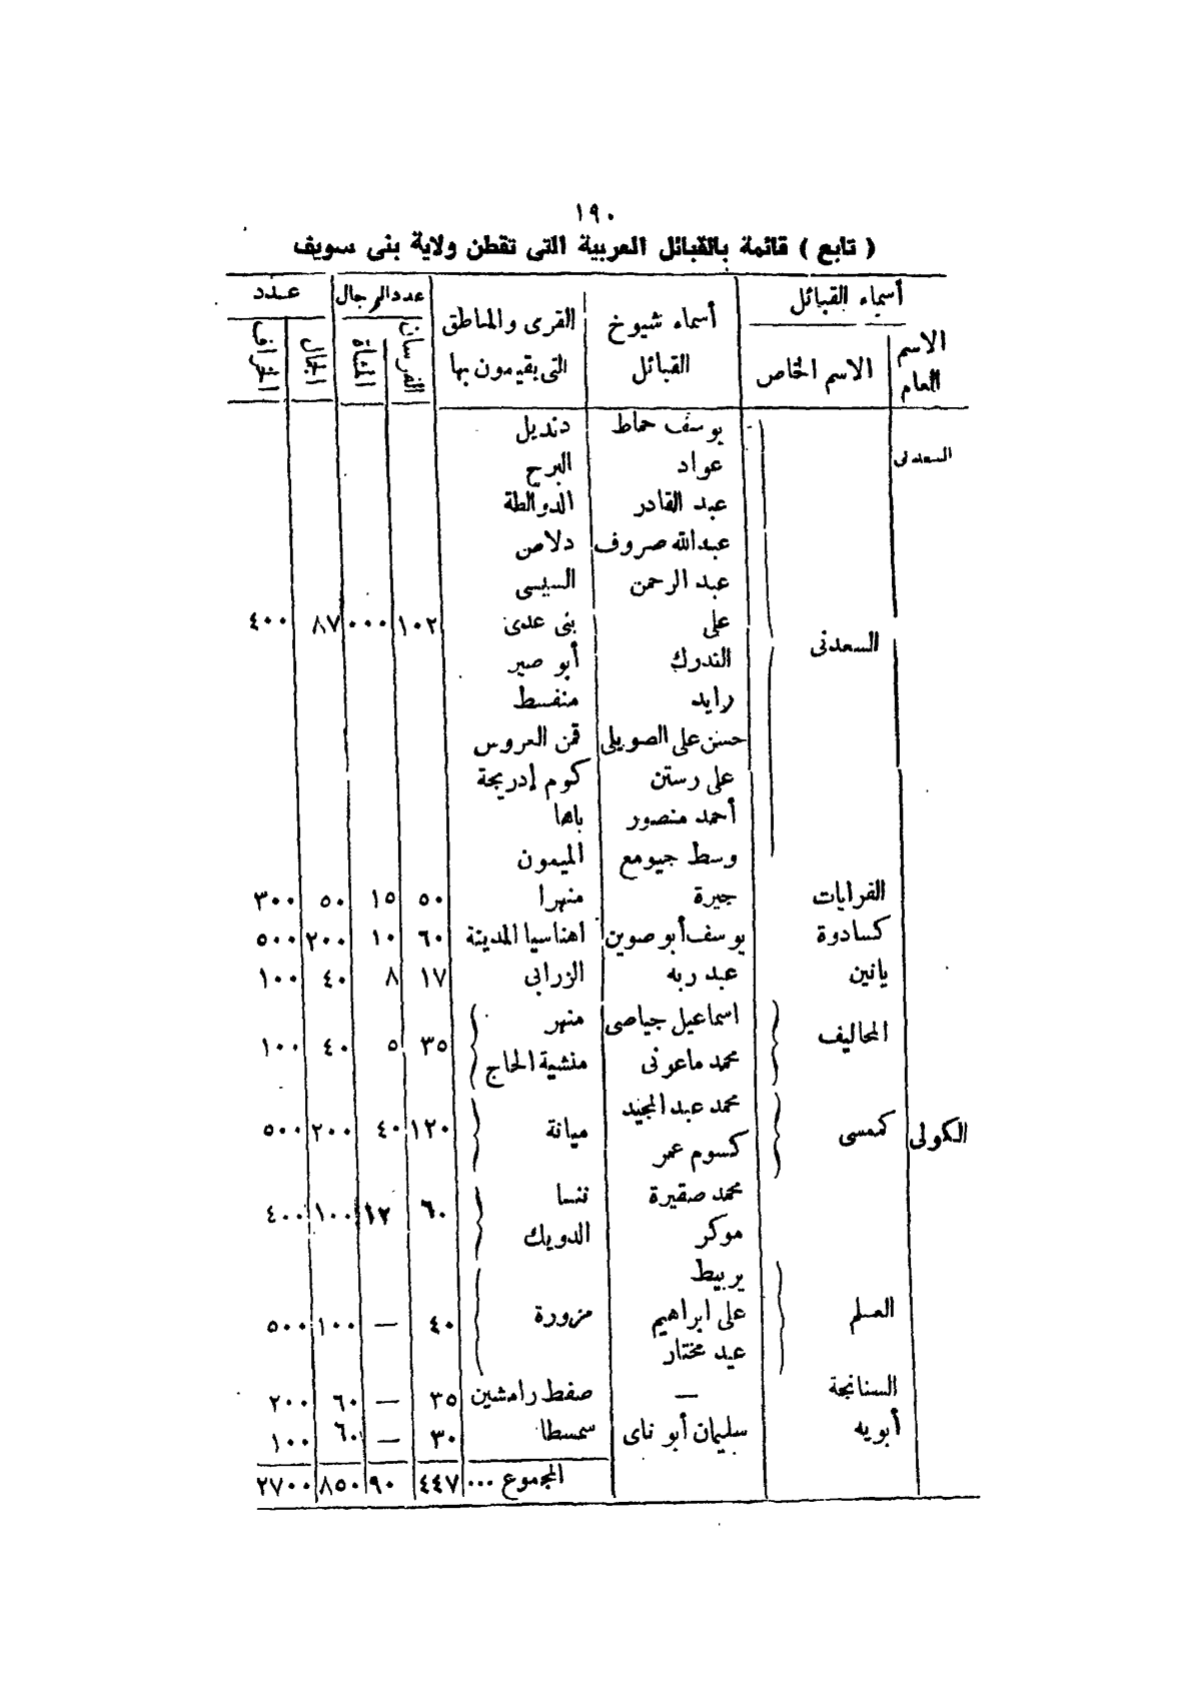 ١٩٠
( تابع ) قائمة بالقبائل العربية التى تقطن ولاية بنى سويف
أسماء القبائل أسماء شيوخ القبائل القرى والمناطق التى يقيمون بها عدد الرجال عدد
الاسم العام الاسم الخاص الفرسان المشاة الجمال الخراف
السعدنى السعدنى يوسف حماط دنديل
عواد البرج
عبد القادر الدوالطة
عبدالله صروف دلاص
عبد الرحمن السيسى
على بنى عدى ١٠٢ ٠٠٠ ٨٧ ٤٠٠
الندرك أبو صير
رايد منفسط
حسن على الصويلى قمن العروس
على رستن كوم إدريجة
أحمد منصور باها
وسط جيومع الميمون
الفرايات جيرة منهرا ٥٠ ١٥ ٥٠ ٣٠٠
كسادوة يوسف أبو صوين اهناسيا المدينة ٦٠ ١٠ ٢٠٠ ٥٠٠
يانين عبد ربه الزرابى ١٧ ٨ ٤٠ ١٠٠
المحاليف اسماعيل جياصى منهر
محمد ماعونى منشية الحاج ٣٥ ٥ ٤٠ ١٠٠
الكولى كمسى محمد عبد المجيد ميانة ١٢٠ ٤٠ ٢٠٠ ٥٠٠
كسوم عمر
محمد صقيرة ننسا ٦٠ ١٢ ١٠٠ ٤٠٠
موكر الدويك
يربيط
العسلم على ابراهيم مزورة ٤٠ — ١٠٠ ٥٠٠
عيد مختار
السنانجة — صفط رامشين ٣٥ — ٦٠ ٢٠٠
أبويه سليمان أبو ناى سمسطا ٣٠ — ٦٠ ١٠٠
المجموع ... ٤٤٧ ٩٠ ٨٥٠ ٢٧٠٠